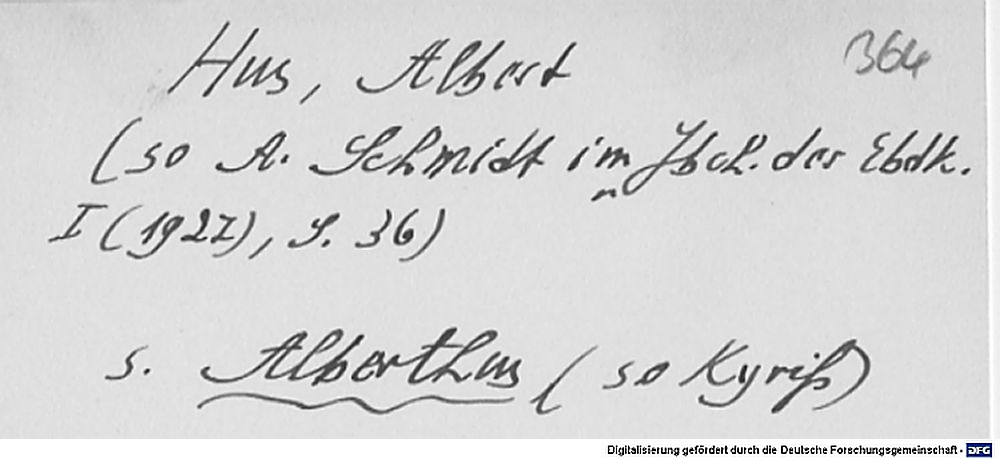 Hus, Albert
364
(so A. Schmidt im Jbch. der Ebdk.
I (1927), S. 36)
s. Alberthus (so Kyriß)
Digitalisierung gefördert durch die Deutsche Forschungsgemeinschaft - DFG